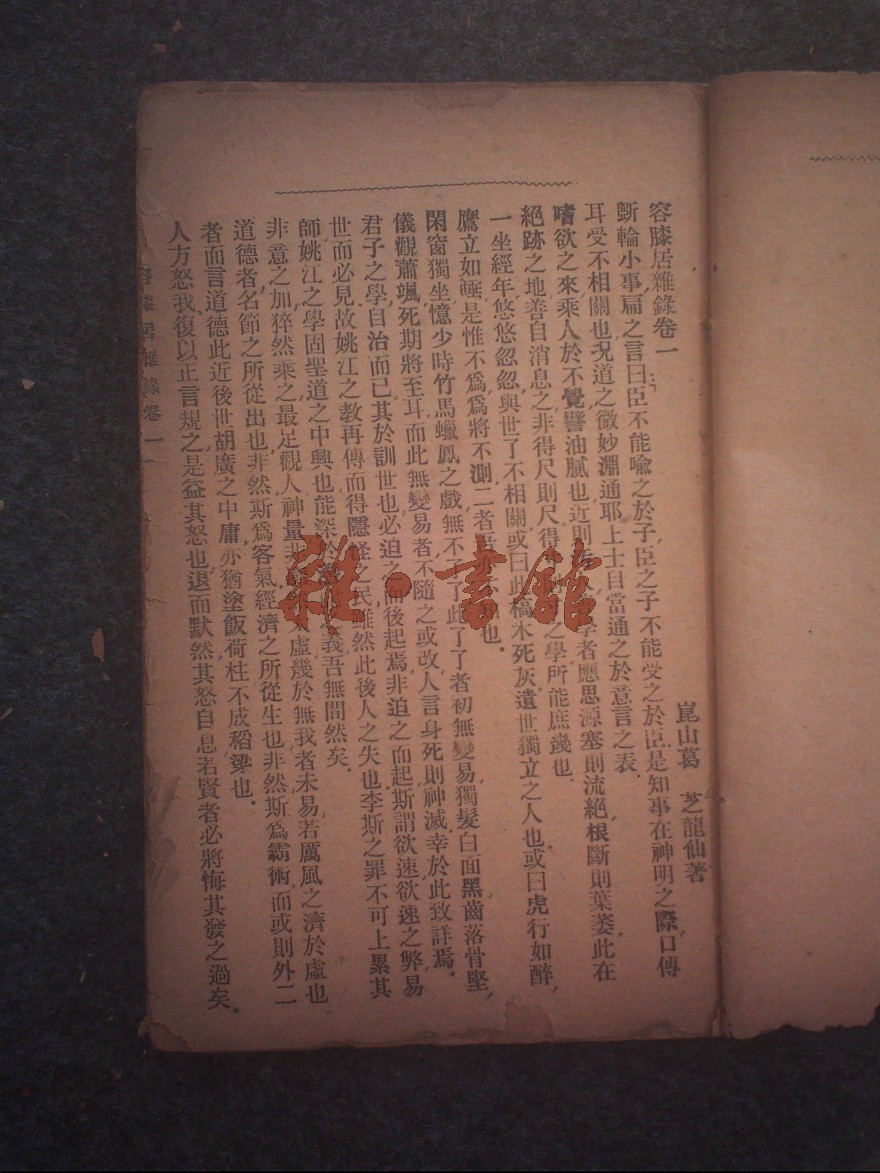 容膝居雜錄卷一
崑山葛　芝龍仙著
斲輪小事扁之言曰臣不能喩之於子臣之子不能受之於臣是知事在神明之際口傳
耳受不相關也况道之微妙淵通耶上士自當通之於意言之表
嗜欲之來乘人於不覺譬油膩也近則 學者應思源塞則流絕根斷則葉萎此在
絕跡之地善自消息之非得尺則尺得 之學所能庶幾也
一坐經年悠悠忽忽與世了不相關或曰此槁木死灰遺世獨立之人也或曰虎行如醉
鷹立如睡是惟不爲爲將不測二者 也
閑窗獨坐憶少時竹馬蠟鳳之戲無不了了此了了者初無變易獨髮白面黑齒落骨堅
儀觀蕭颯死期將至耳而此無變易者不隨之或改人言身死則神滅幸於此致詳焉
君子之學自治而已其於訓世也必迫之而後起焉非迫之而起斯謂欲速欲速之弊易
世而必見故姚江之教再傳而得隱怪之民雖然此後人之失也李斯之罪不可上累其
師姚江之學固聖道之中興也能深於 義吾無間然矣
非意之加猝然乘之最足觀人神量非 虛幾於無我者未易若厲風之濟於虛也
道德者名節之所從出也非然斯爲客氣經濟之所從生也非然斯爲霸術而或則外二
者而言道德此近後世胡廣之中庸亦猶塗飯荷柱不成稻梁也
人方怒我復以正言規之是益其怒也退而默然其怒自息若賢者必將悔其發之過矣
容膝居雜錄卷一
雜·書館